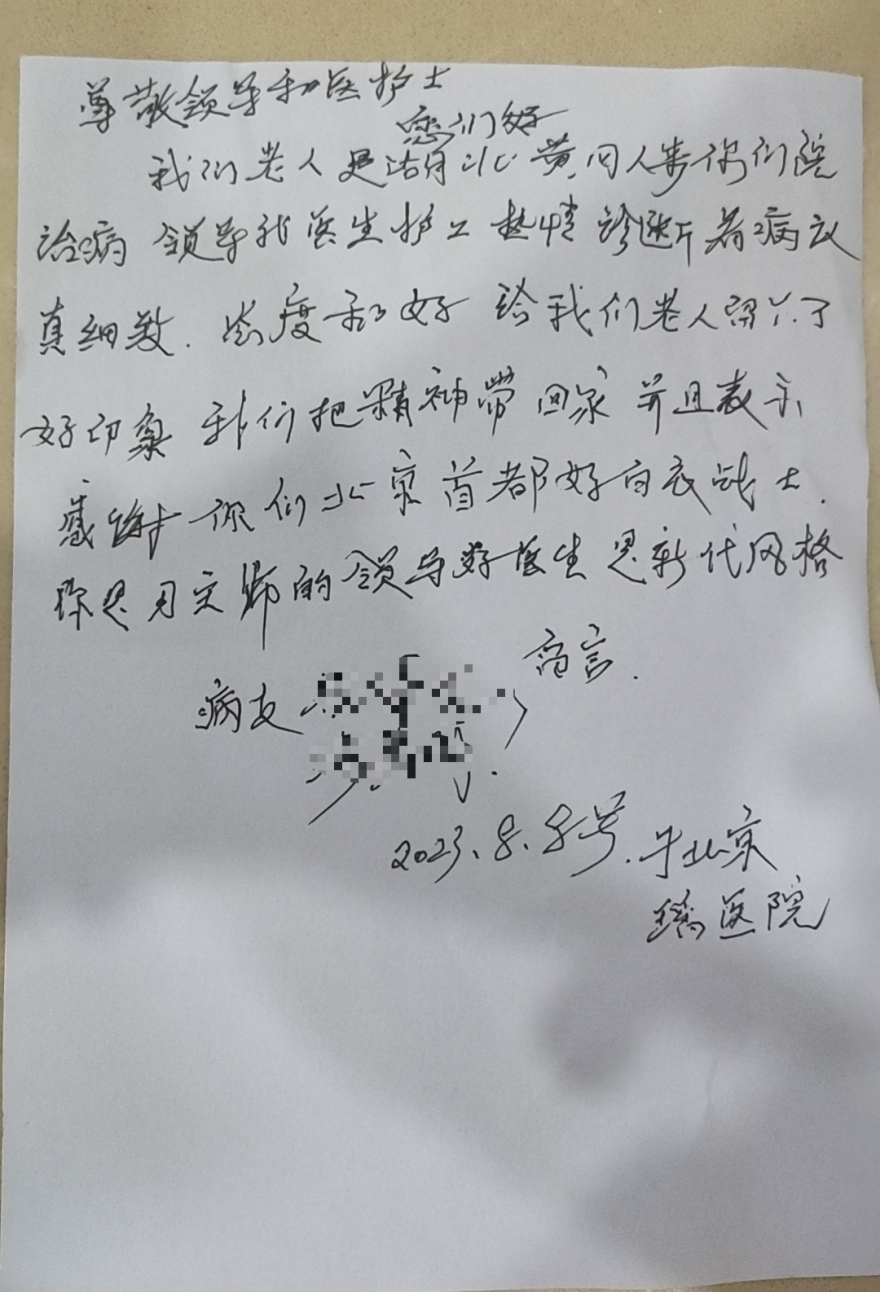 尊敬领导和医护士
您们好
我们老人是湖北黄冈人来你们院
治病 领导和医生护士热情 诊断看病认
真细致.态度和好 给我们老人留下了
好印象 我们把精神带回家 并且表示
感谢 你们北京首都好白衣战士.
你是用实际的领导好医生 是新代风格
病友 留言.
2023.8.8号.于北京
医院